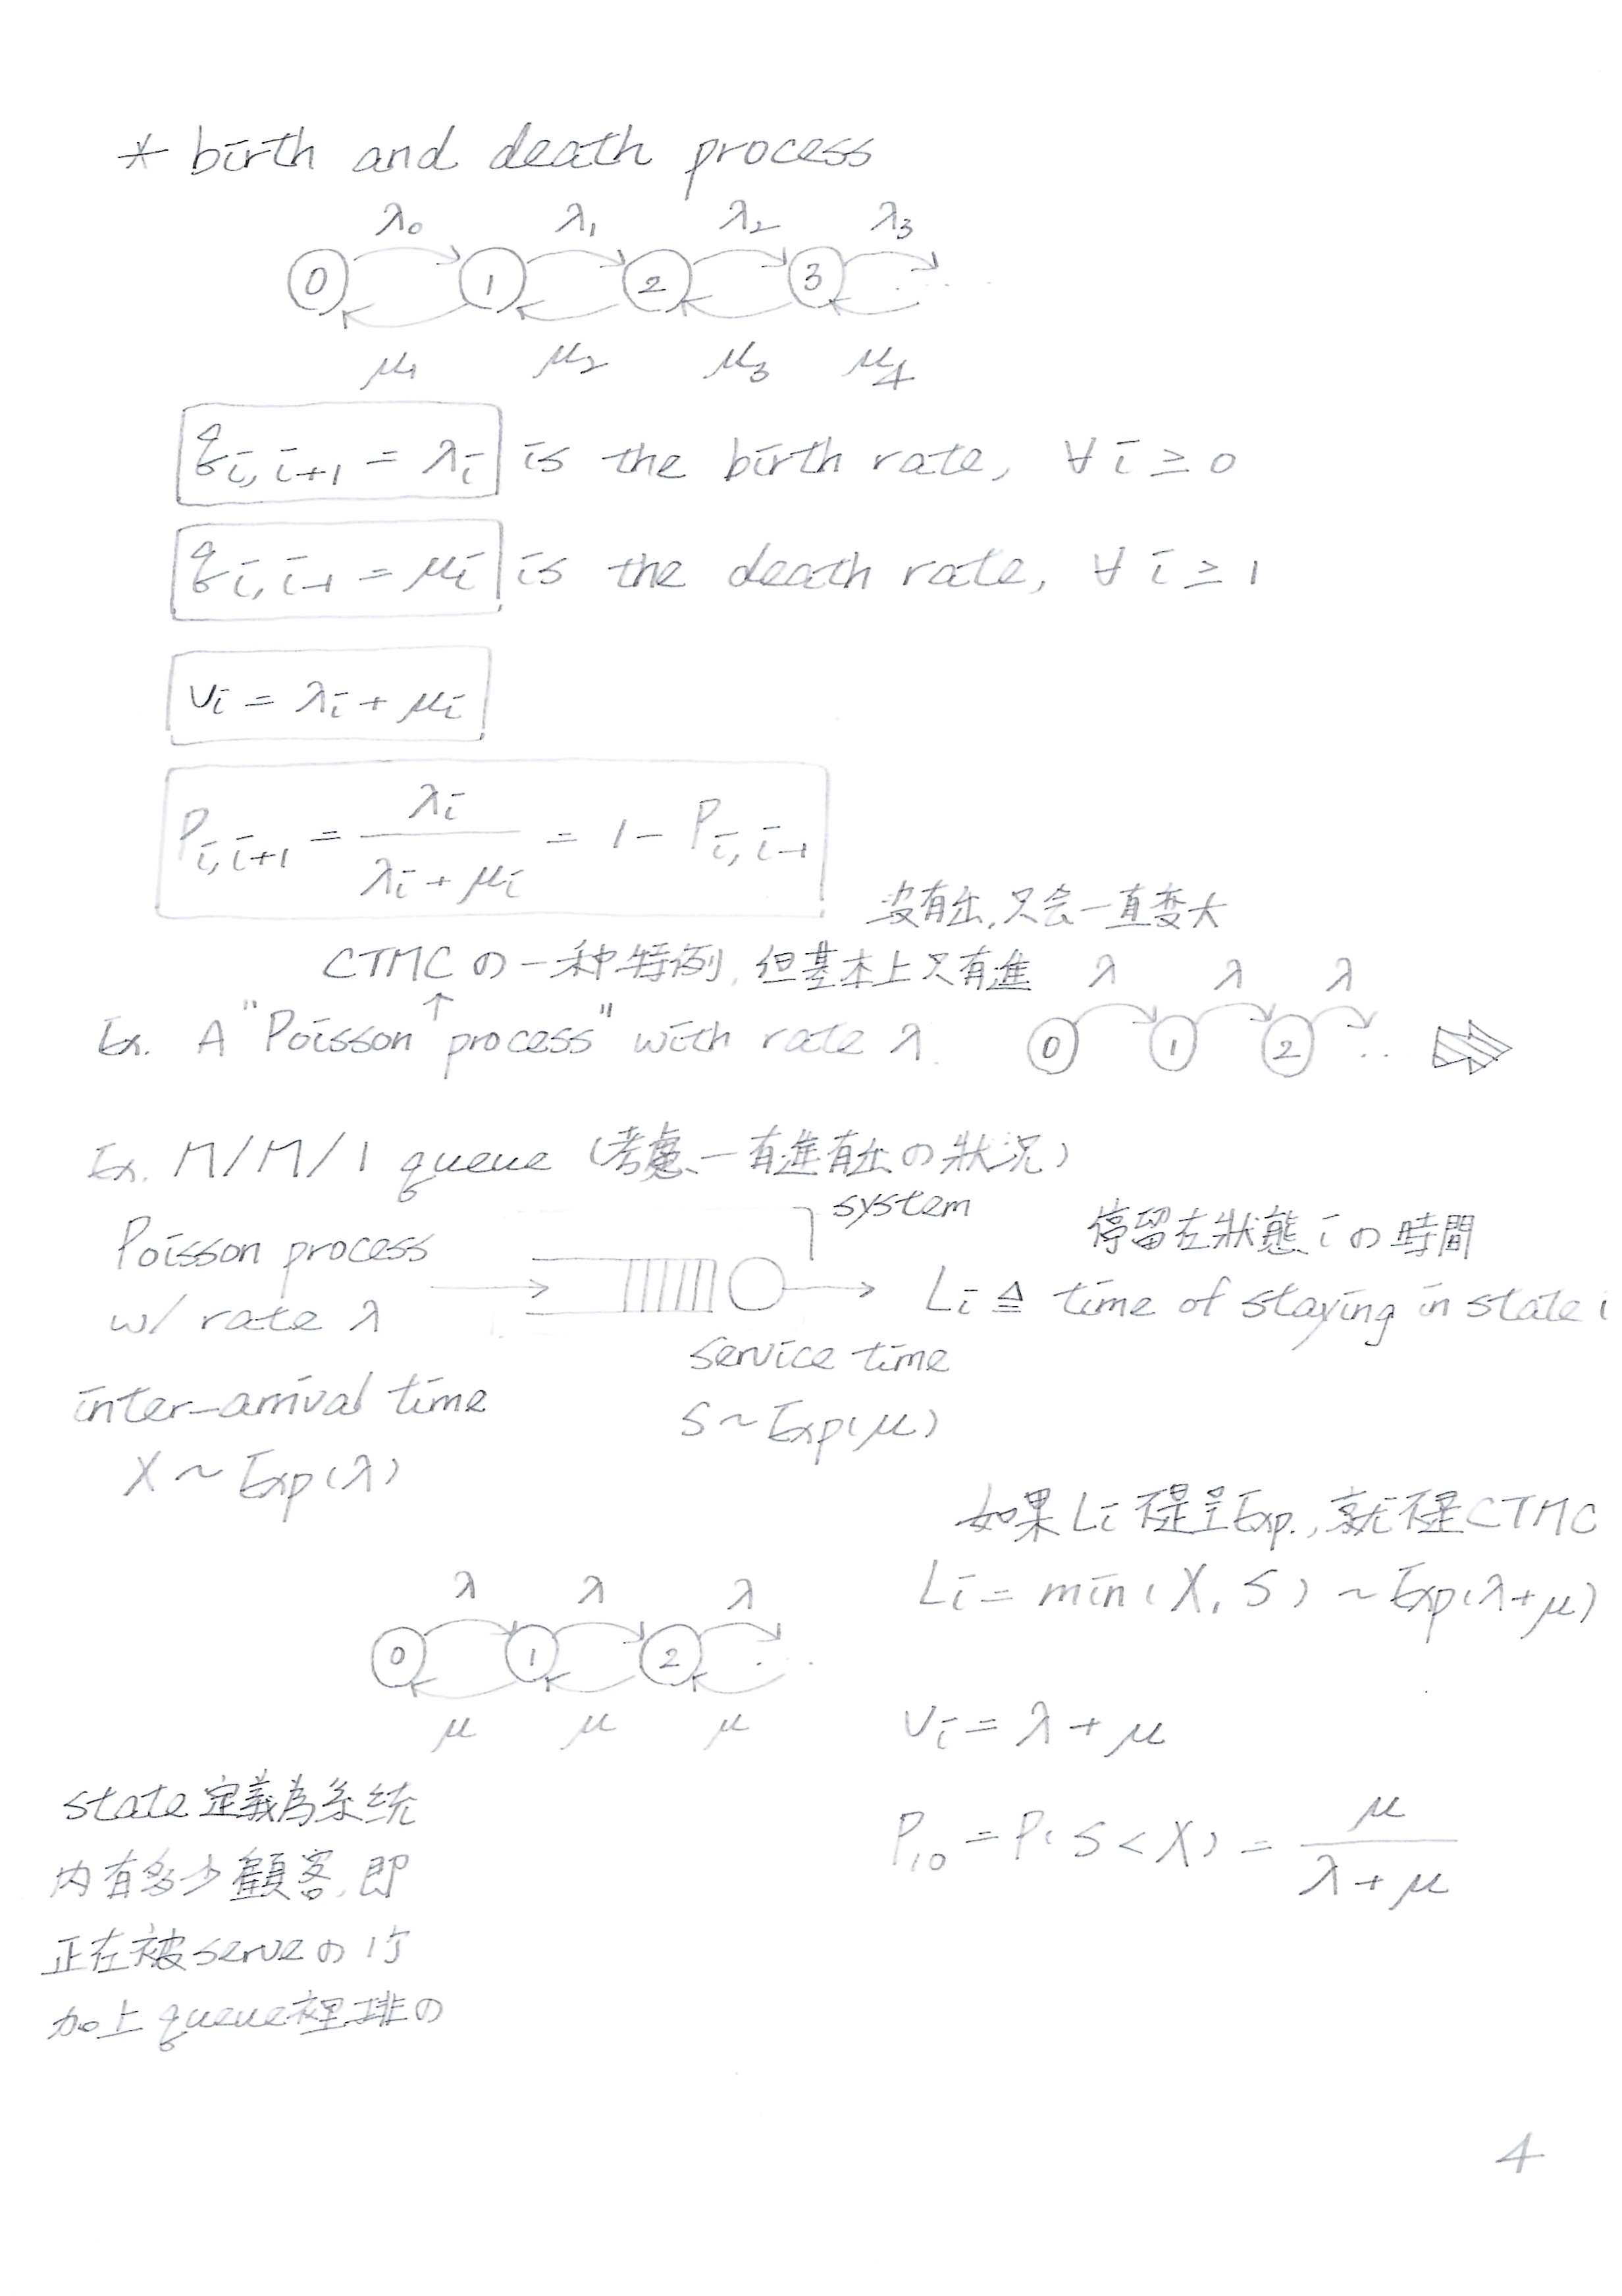 * birth and death process
λ₀ λ₁ λ₂ λ₃
0 1 2 3 ...
μ₁ μ₂ μ₃ μ₄
qᵢ,ᵢ₊₁ = λᵢ is the birth rate, ∀ i ≥ 0
qᵢ,ᵢ₋₁ = μᵢ is the death rate, ∀ i ≥ 1
νᵢ = λᵢ + μᵢ
Pᵢ,ᵢ₊₁ = λᵢ / (λᵢ + μᵢ) = 1 − Pᵢ,ᵢ₋₁
沒有出,只会一直變大
CTMCの一种特例,但基本上只有進
λ λ λ
Ex. A "Poisson process" with rate λ.
↑
0 1 2 ..
Ex. M/M/1 queue (考慮一有進有出の狀況)
system
Poisson process
w/ rate λ
停留在狀態iの時間
Lᵢ ≜ time of staying in state i
service time
S ~ Exp(μ)
inter-arrival time
X ~ Exp(λ)
如果Lᵢ不是呈Exp.,就不是CTMC
Lᵢ = min(X, S) ~ Exp(λ+μ)
λ λ λ
0 1 2 ...
μ μ μ
νᵢ = λ + μ
P₁₀ = P(S < X) = μ / (λ + μ)
state定義為系統
内有多少顧客,即
正在被serveの1个
加上queue裡排の
4